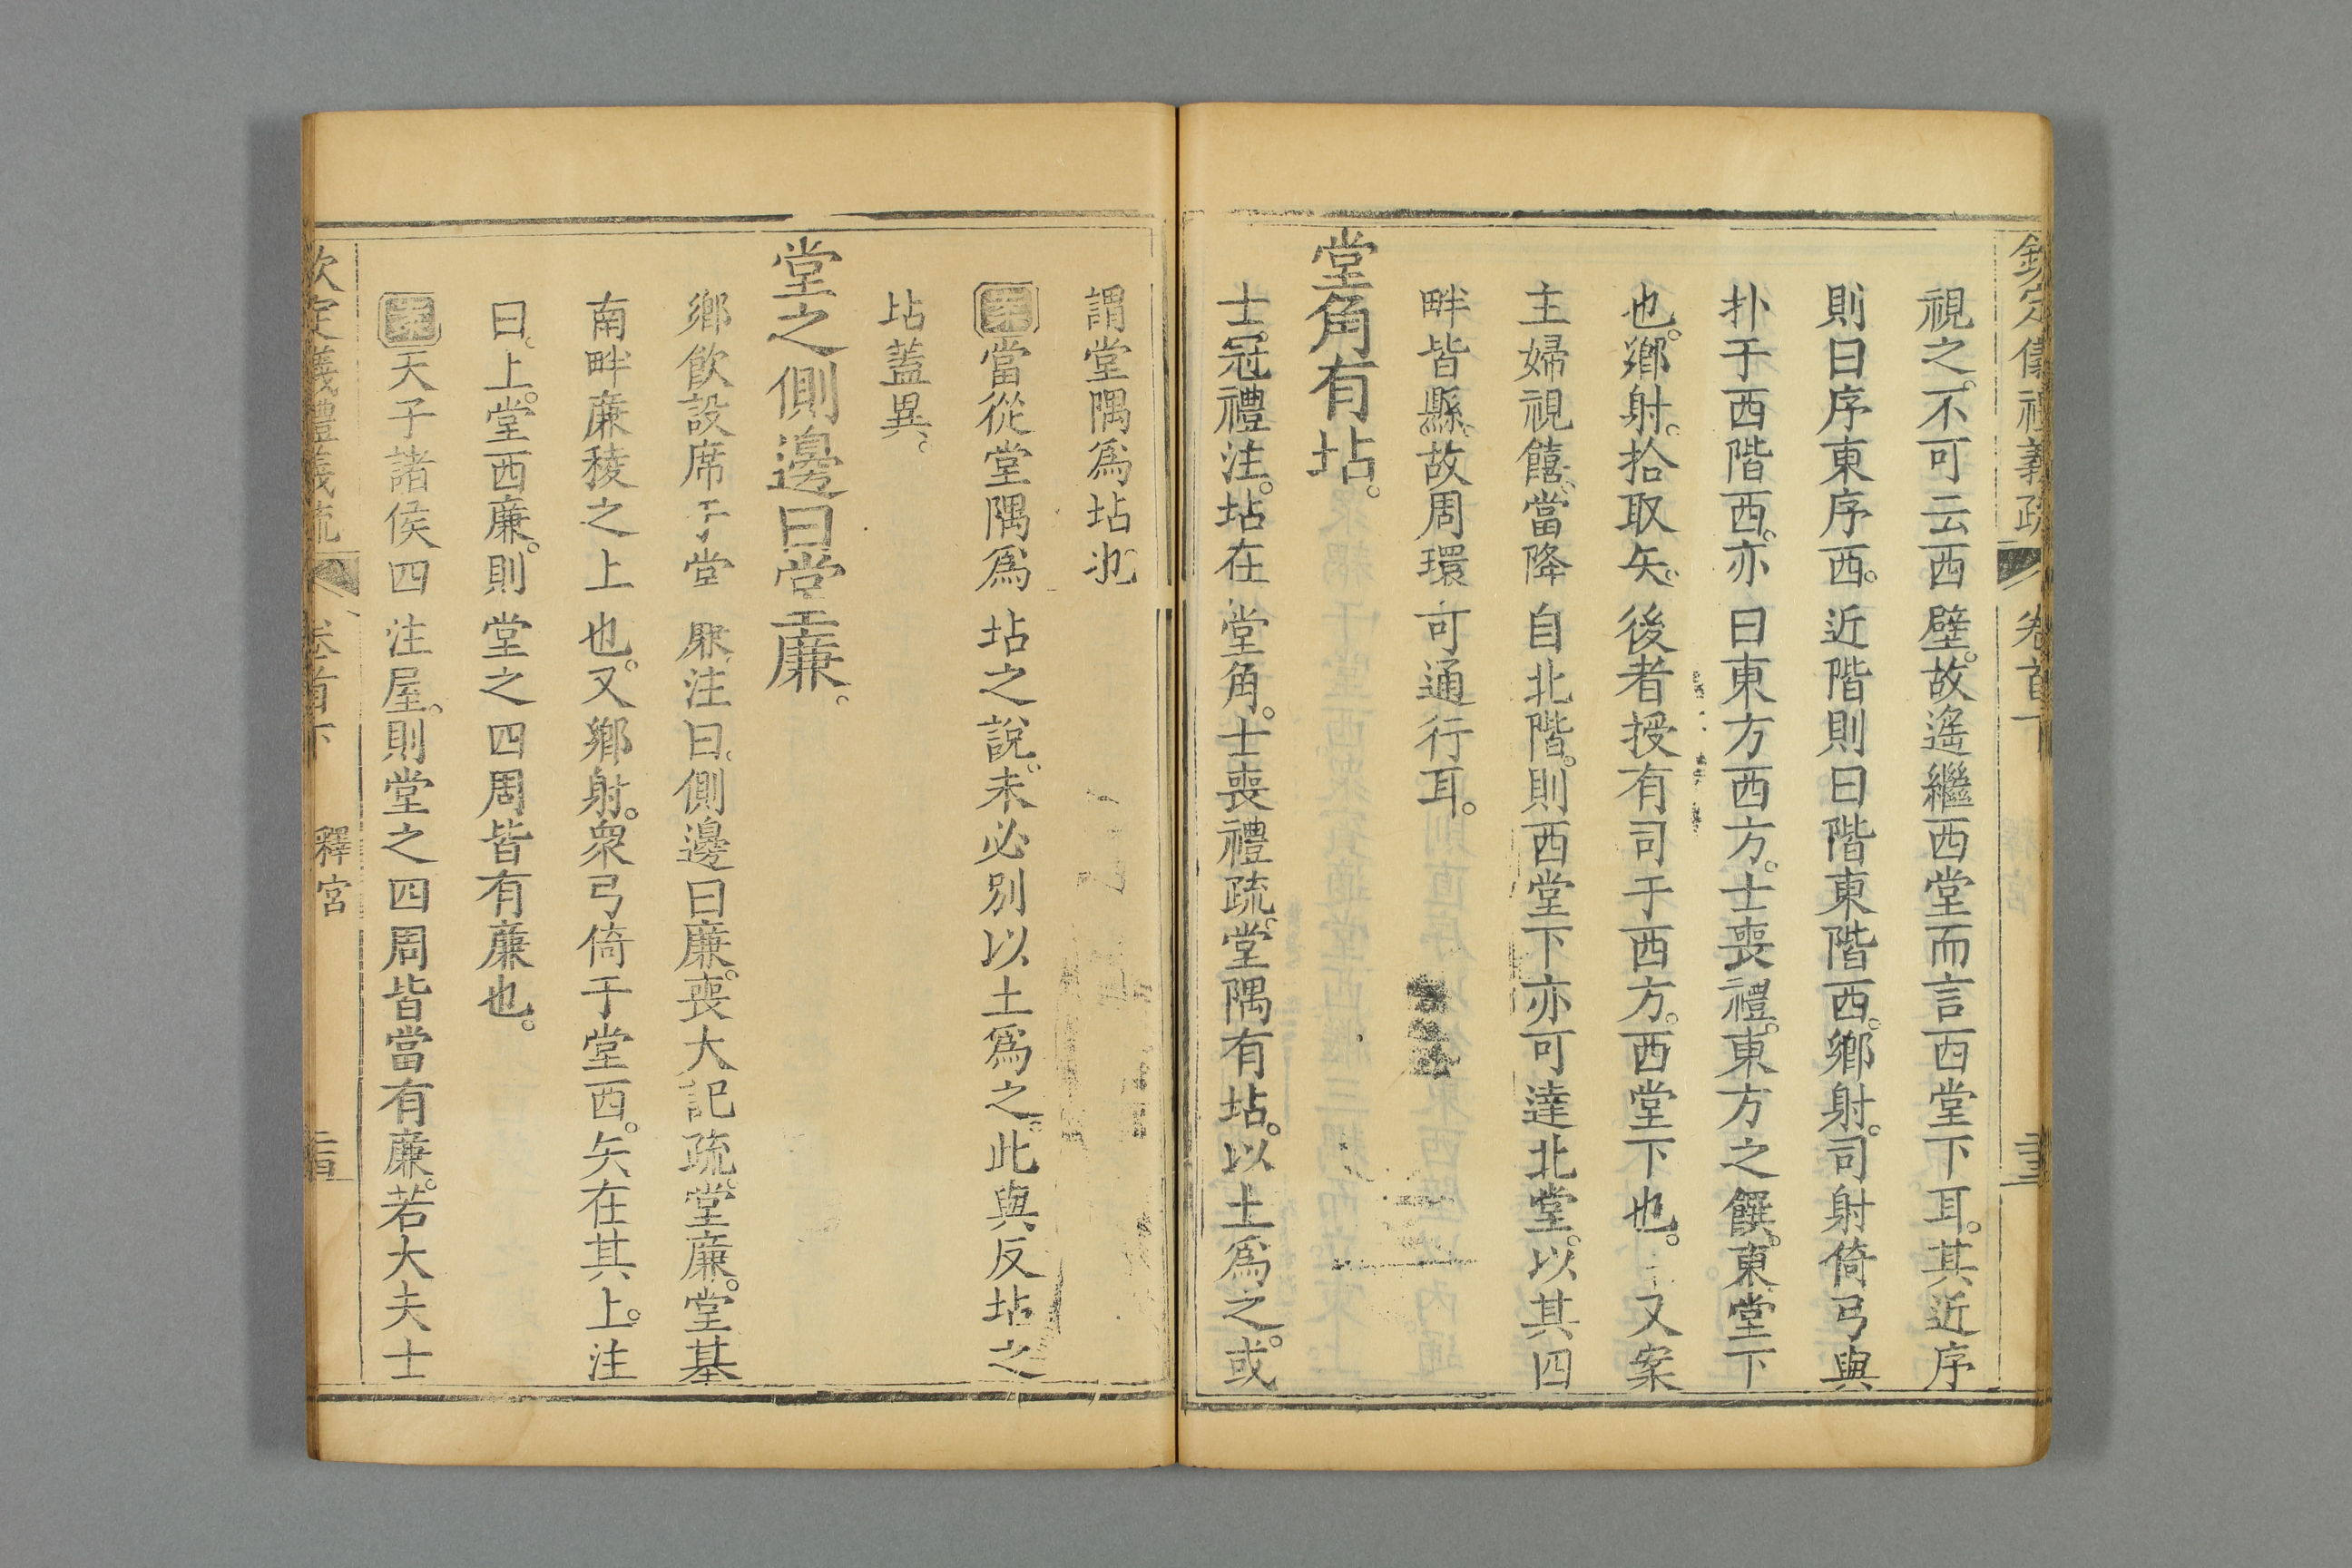 欽定儀禮義疏 卷首下
視之。不可云西壁。故遙繼西堂而言西堂下耳。其近序
則曰序東序西。近階則曰階東階西。鄉射。司射倚弓與
扑于西階西。亦曰東方西方。士喪禮。東方之饌。東堂下
也。鄉射。拾取矢。後者授有司于西方。西堂下也。又案
主婦視饎。當降自北階。則西堂下亦可達北堂。以其四
畔皆縣。故周環可通行耳。
堂角有坫。
士冠禮注。坫在堂角。士喪禮疏。堂隅有坫。以土爲之。或
謂堂隅爲坫也
案當從堂隅爲坫之說。未必別以土爲之。此與反坫之
坫蓋異。
堂之側邊曰堂廉。
鄉飲設席于堂廉注曰。側邊曰廉。喪大記疏。堂廉。堂基
南畔廉稜之上也。又鄉射。衆弓倚于堂西。矢在其上。注
曰。上。堂西廉。則堂之四周皆有廉也。
案天子諸侯四注屋。則堂之四周皆當有廉。若大夫士
欽定儀禮義疏 卷首下 釋宮